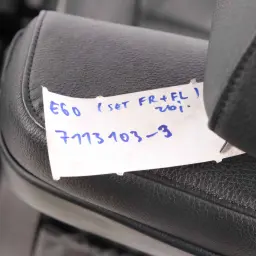 E60 (SET FR+FL)
20i.
7113103-3